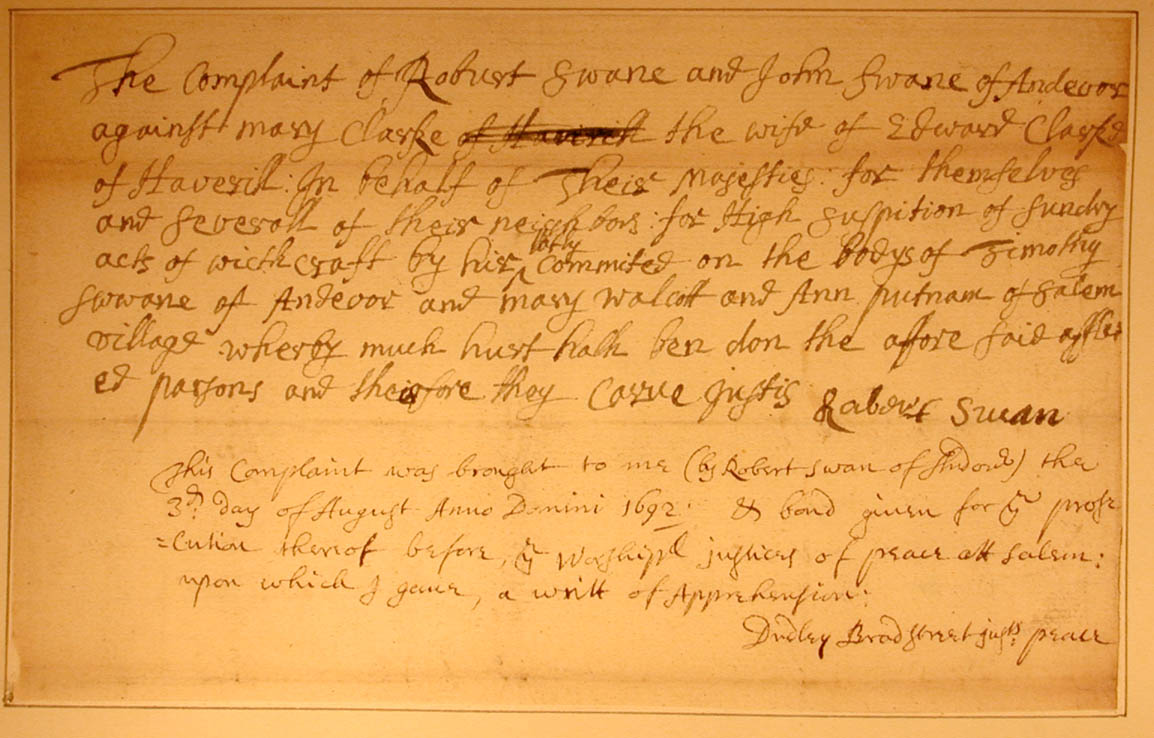 The Complaint of Roburt Swane and John Swane of Andevor
against mary Clarke of Haverill the wife of Edward Clarke
of Haverill: In behalf of Theis Majesties: for themselves
and severall of theis neighbors: for High suspition of sundry
acts of wichcraft by hir latly Commited on the bodys of Timothy
Swwane of Andevor and mary walcott and Ann putnam of Salem
village wherby much hurt hath ben don the afore said afflict
ed parsons and theirfore they Carve justis Rabert Swan
This Complaint was brought to me (by Robert Swan of Andover) the
3d: day of August Anno Domini 1692: & bond given for ye prose
=Cution thereof before, ye Worshipll justices of peace att Salem:
upon which I gave, a writt of Apprehension:
Dudley Bradstreet justs: peace